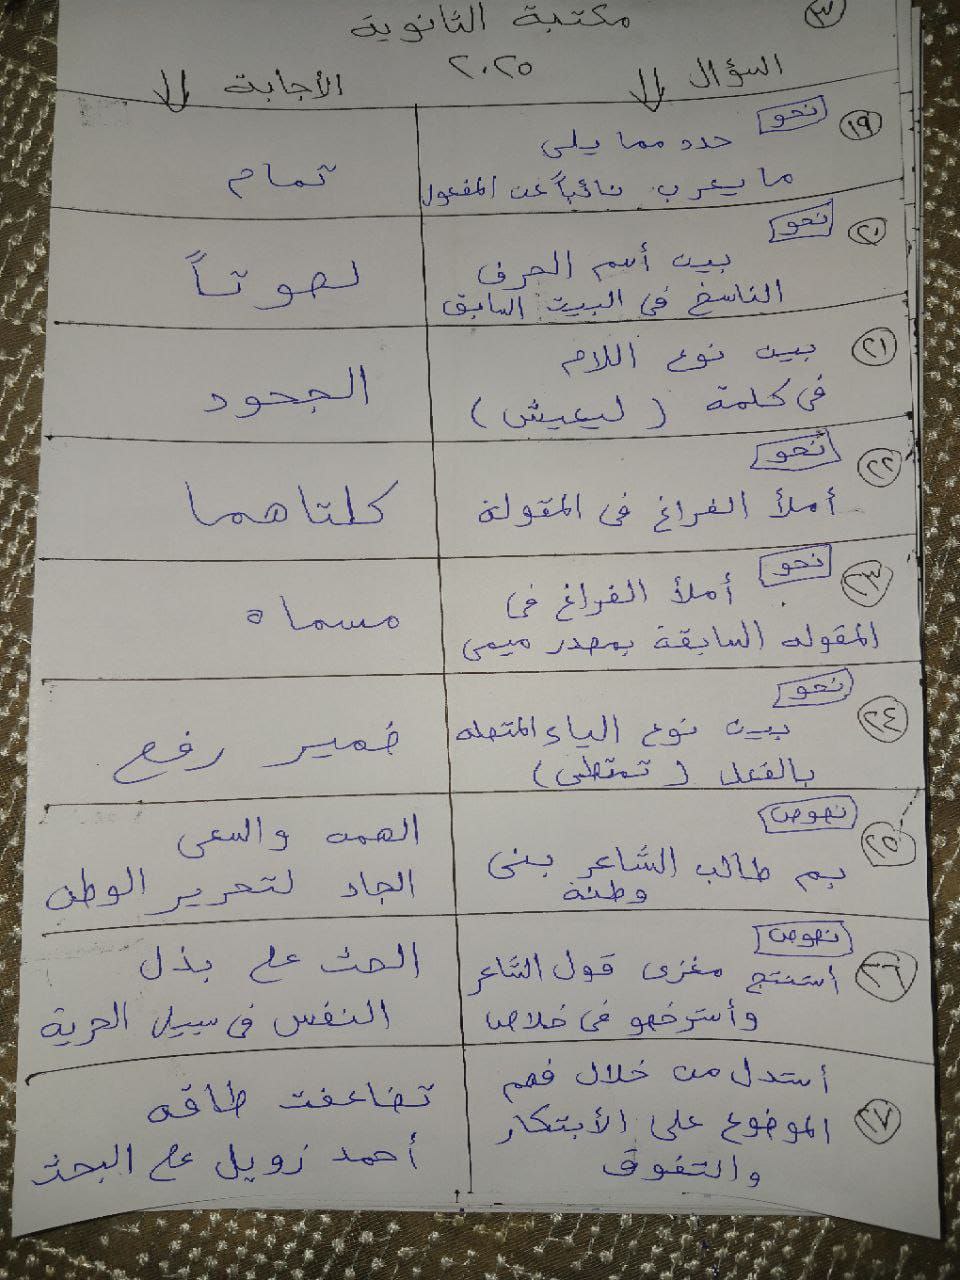 ٣
مكتبة الثانوية
٢٠٢٥
السؤال
الأجابة
١٩ نحو
حدد مما يلى
ما يعرب نائباً عن المفعول
تمام
٢٠ نحو
بين أسم الحرف
الناسخ فى البيت السابق
صوتاً
٢١ بين نوع اللام
فى كلمة (ليعيش)
الجحود
٢٢ نحو
أملأ الفراغ فى المقولة
كلتاهما
٢٣ نحو
أملأ الفراغ فى
المقوله السابقة بمصدر ميمى
مسماه
٢٤ نحو
بين نوع الياء المتصله
بالفعل (تمتطى)
ضمير رفع
٢٥ نصوص
بم طالب الشاعر بنى
وطنة
الهمه والسعى
الجاد لتحرير الوطن
٢٦ نصوص
أستنتج مغزى قول الشاعر
وأسترخصو فى خلاصها
الحث على بذل
النفس فى سبيل الحرية
٢٧ أستدل من خلال فهم
الموضوع على الأبتكار
والتفوق
تضاعفت طاقه
أحمد زويل على البحث